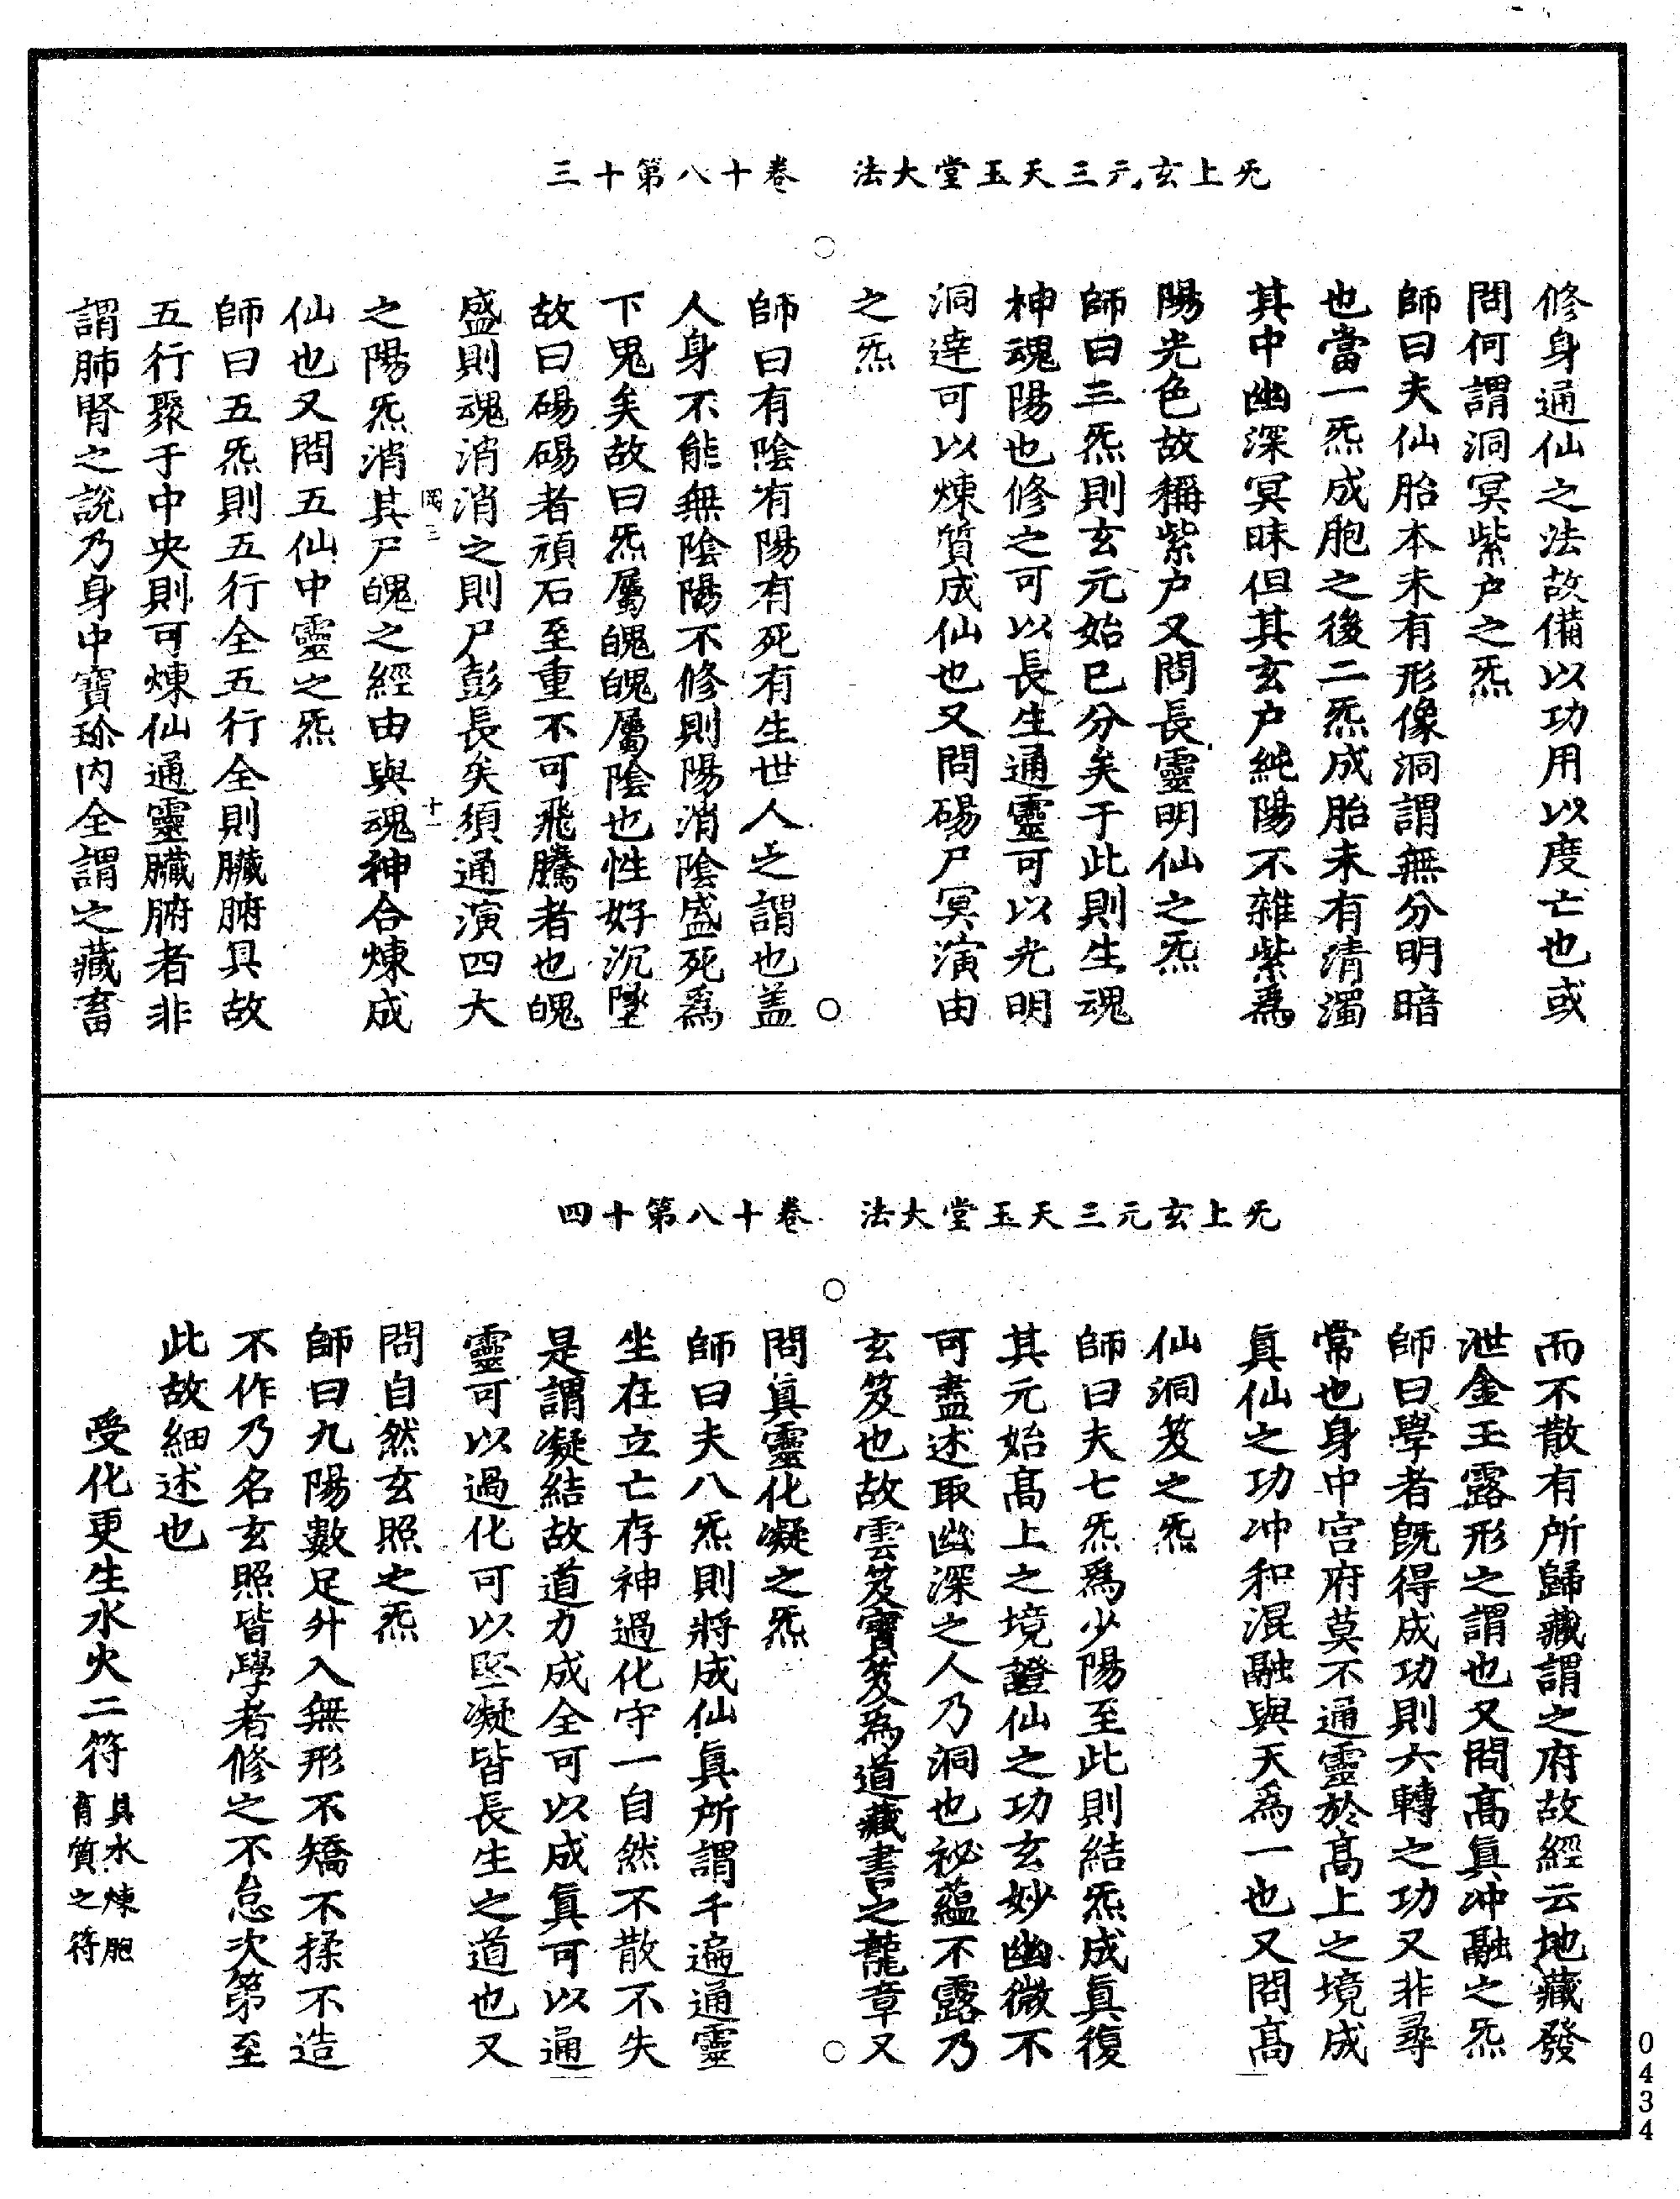 无上玄元三天玉堂大法　卷十八第十三
修身通仙之法故備以功用以度亡也或
問何謂洞冥紫户之炁
師曰夫仙胎本未有形像洞謂無分明暗
也當一炁成胞之後二炁成胎未有清濁
其中幽深冥昧但其玄户純陽不雜紫爲
陽光色故稱紫户又問長靈明仙之炁
師曰三炁則玄元始已分矣于此則生魂
神魂陽也修之可以長生通靈可以光明
洞達可以煉質成仙也又問碭尸冥演由
之炁
師曰有陰有陽有死有生世人之謂也盖
人身不能無陰陽不修則陽消陰盛死爲
下鬼矣故曰炁屬魄魄屬陰也性好沉墜
故曰碭碭者頑石至重不可飛騰者也魄
盛則魂消消之則尸彭長矣須通演四大
十一
之陽炁消其尸魄之經由與魂神合煉成
仙也又問五仙中靈之炁
師曰五炁則五行全五行全則臟腑具故
五行聚于中央則可煉仙通靈臟腑者非
謂肺腎之說乃身中寳珎内全謂之藏畜
无上玄元三天玉堂大法　卷十八第十四
而不散有所歸藏謂之府故經云地藏發
泄金玉露形之謂也又問髙真冲融之炁
師曰學者旣得成功則六轉之功又非尋
常也身中宫府莫不通靈於髙上之境成
真仙之功冲和混融與天爲一也又問髙
仙洞笈之炁
師曰夫七炁爲少陽至此則結炁成真復
其元始髙上之境證仙之功玄妙幽微不
可盡述取幽深之人乃洞也祕蘊不露乃
玄笈也故雲笈寳笈爲道藏書之龍章又
問真靈化凝之炁
師曰夫八炁則將成仙真所謂千遍通靈
坐在立亡存神過化守一自然不散不失
是謂凝結故道力成全可以成真可以通
靈可以過化可以堅凝皆長生之道也又
問自然玄照之炁
師曰九陽數足升入無形不矯不揉不造
不作乃名玄照皆學者修之不怠次第至
此故細述也
受化更生水火二符具水煉胆有質之符
0434